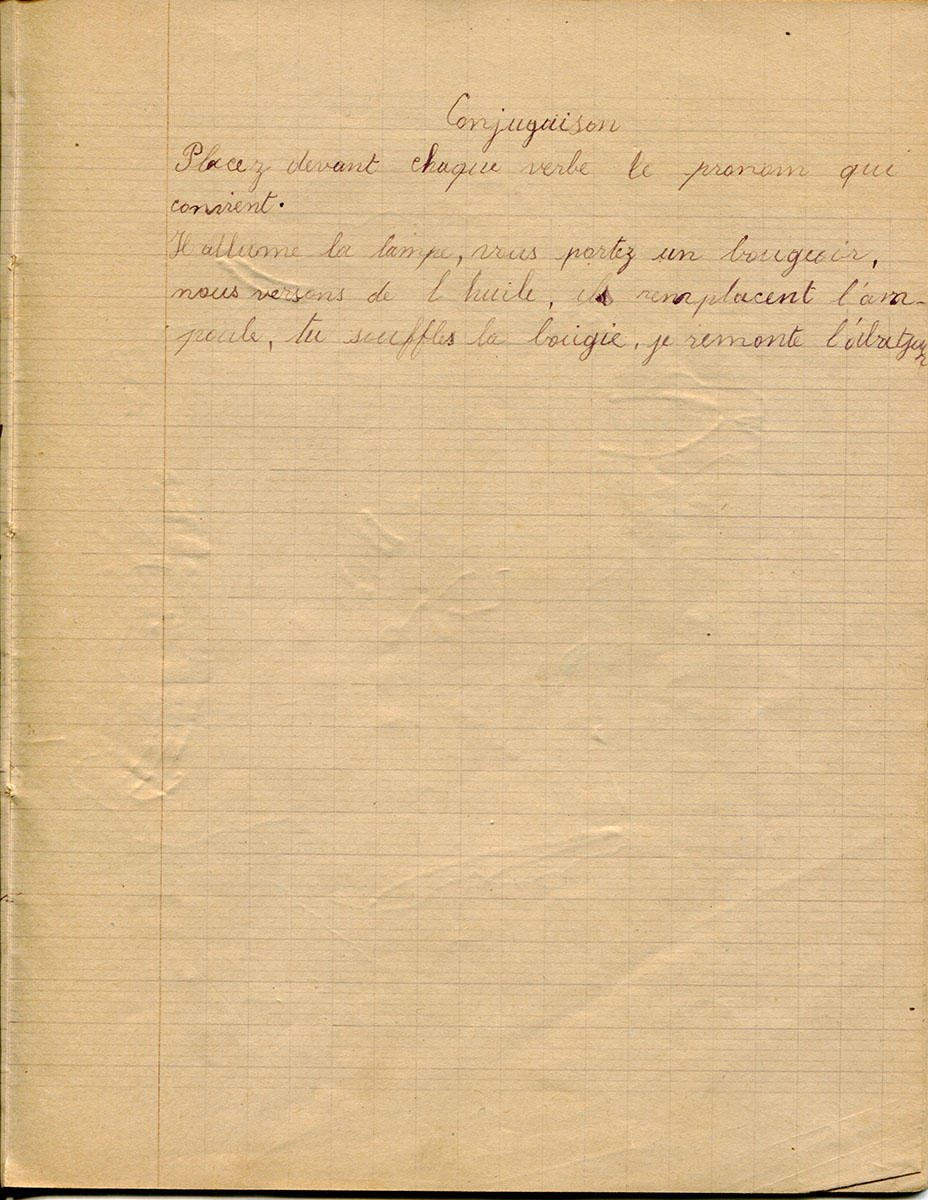 Conjugaison
Placez devant chaque verbe le pronom que
convient.
Il allume la lampe, vous portez un bougeoir,
nous versons de l huile, ils remplacent l'am-
poule, tu souffles la bougie, je remonte